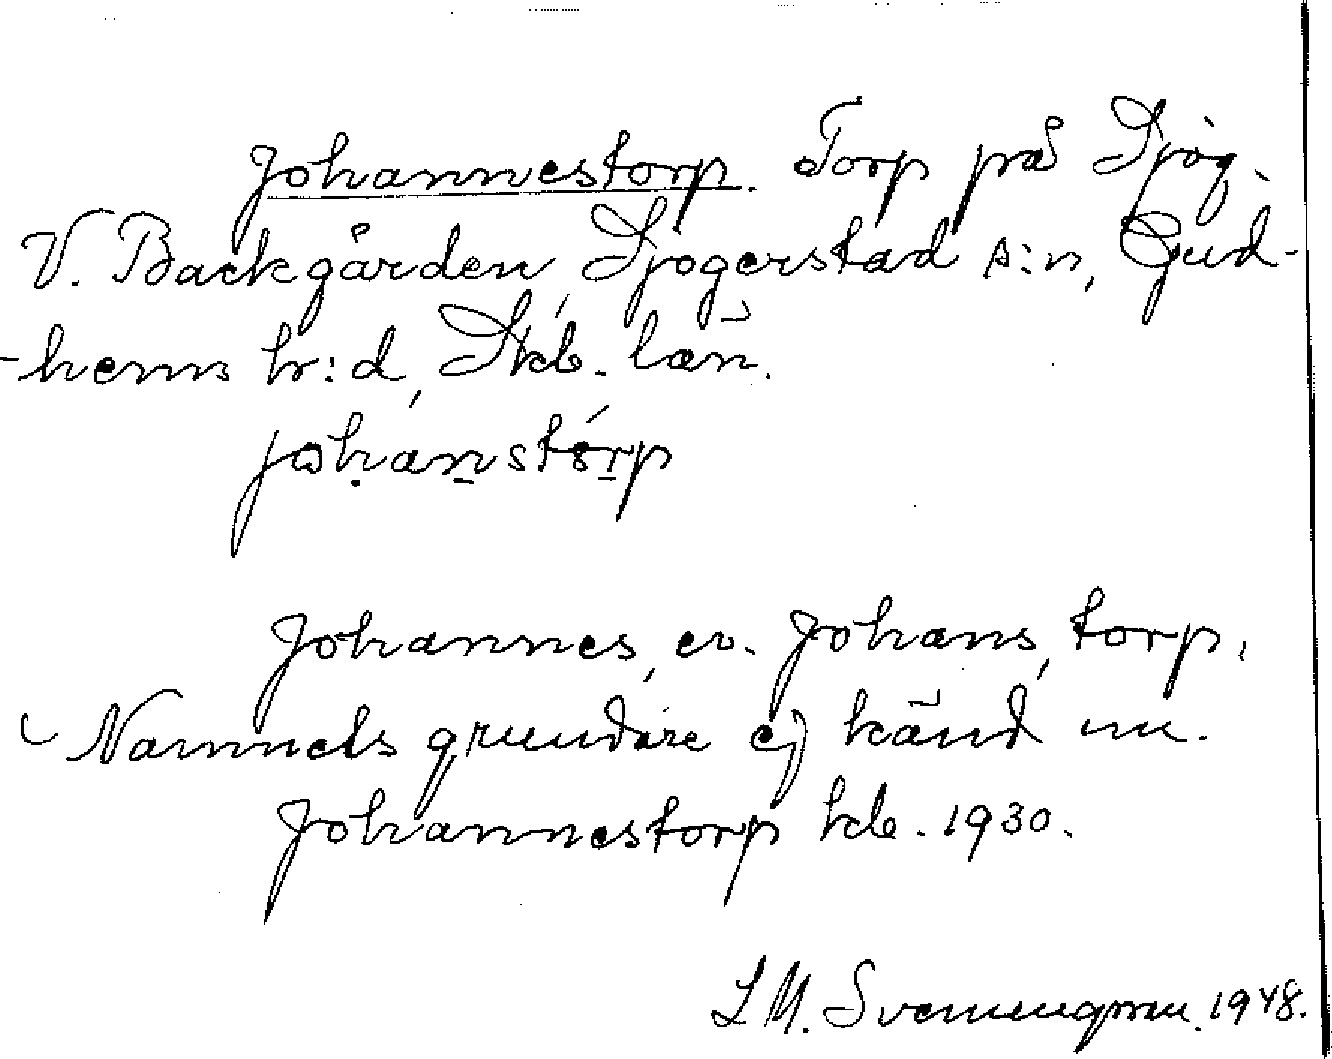 Johannestorp. Torp på Sjög.
V. Backgården, Sjogerstad s:n, Gud-
hems h:d, Skb. län.
johanstorp
Johannes, ev. Johans, torp,
Namnets grundare ej känd nu.
Johannestorp kb. 1930.
S M. Svenungsson. 1948.